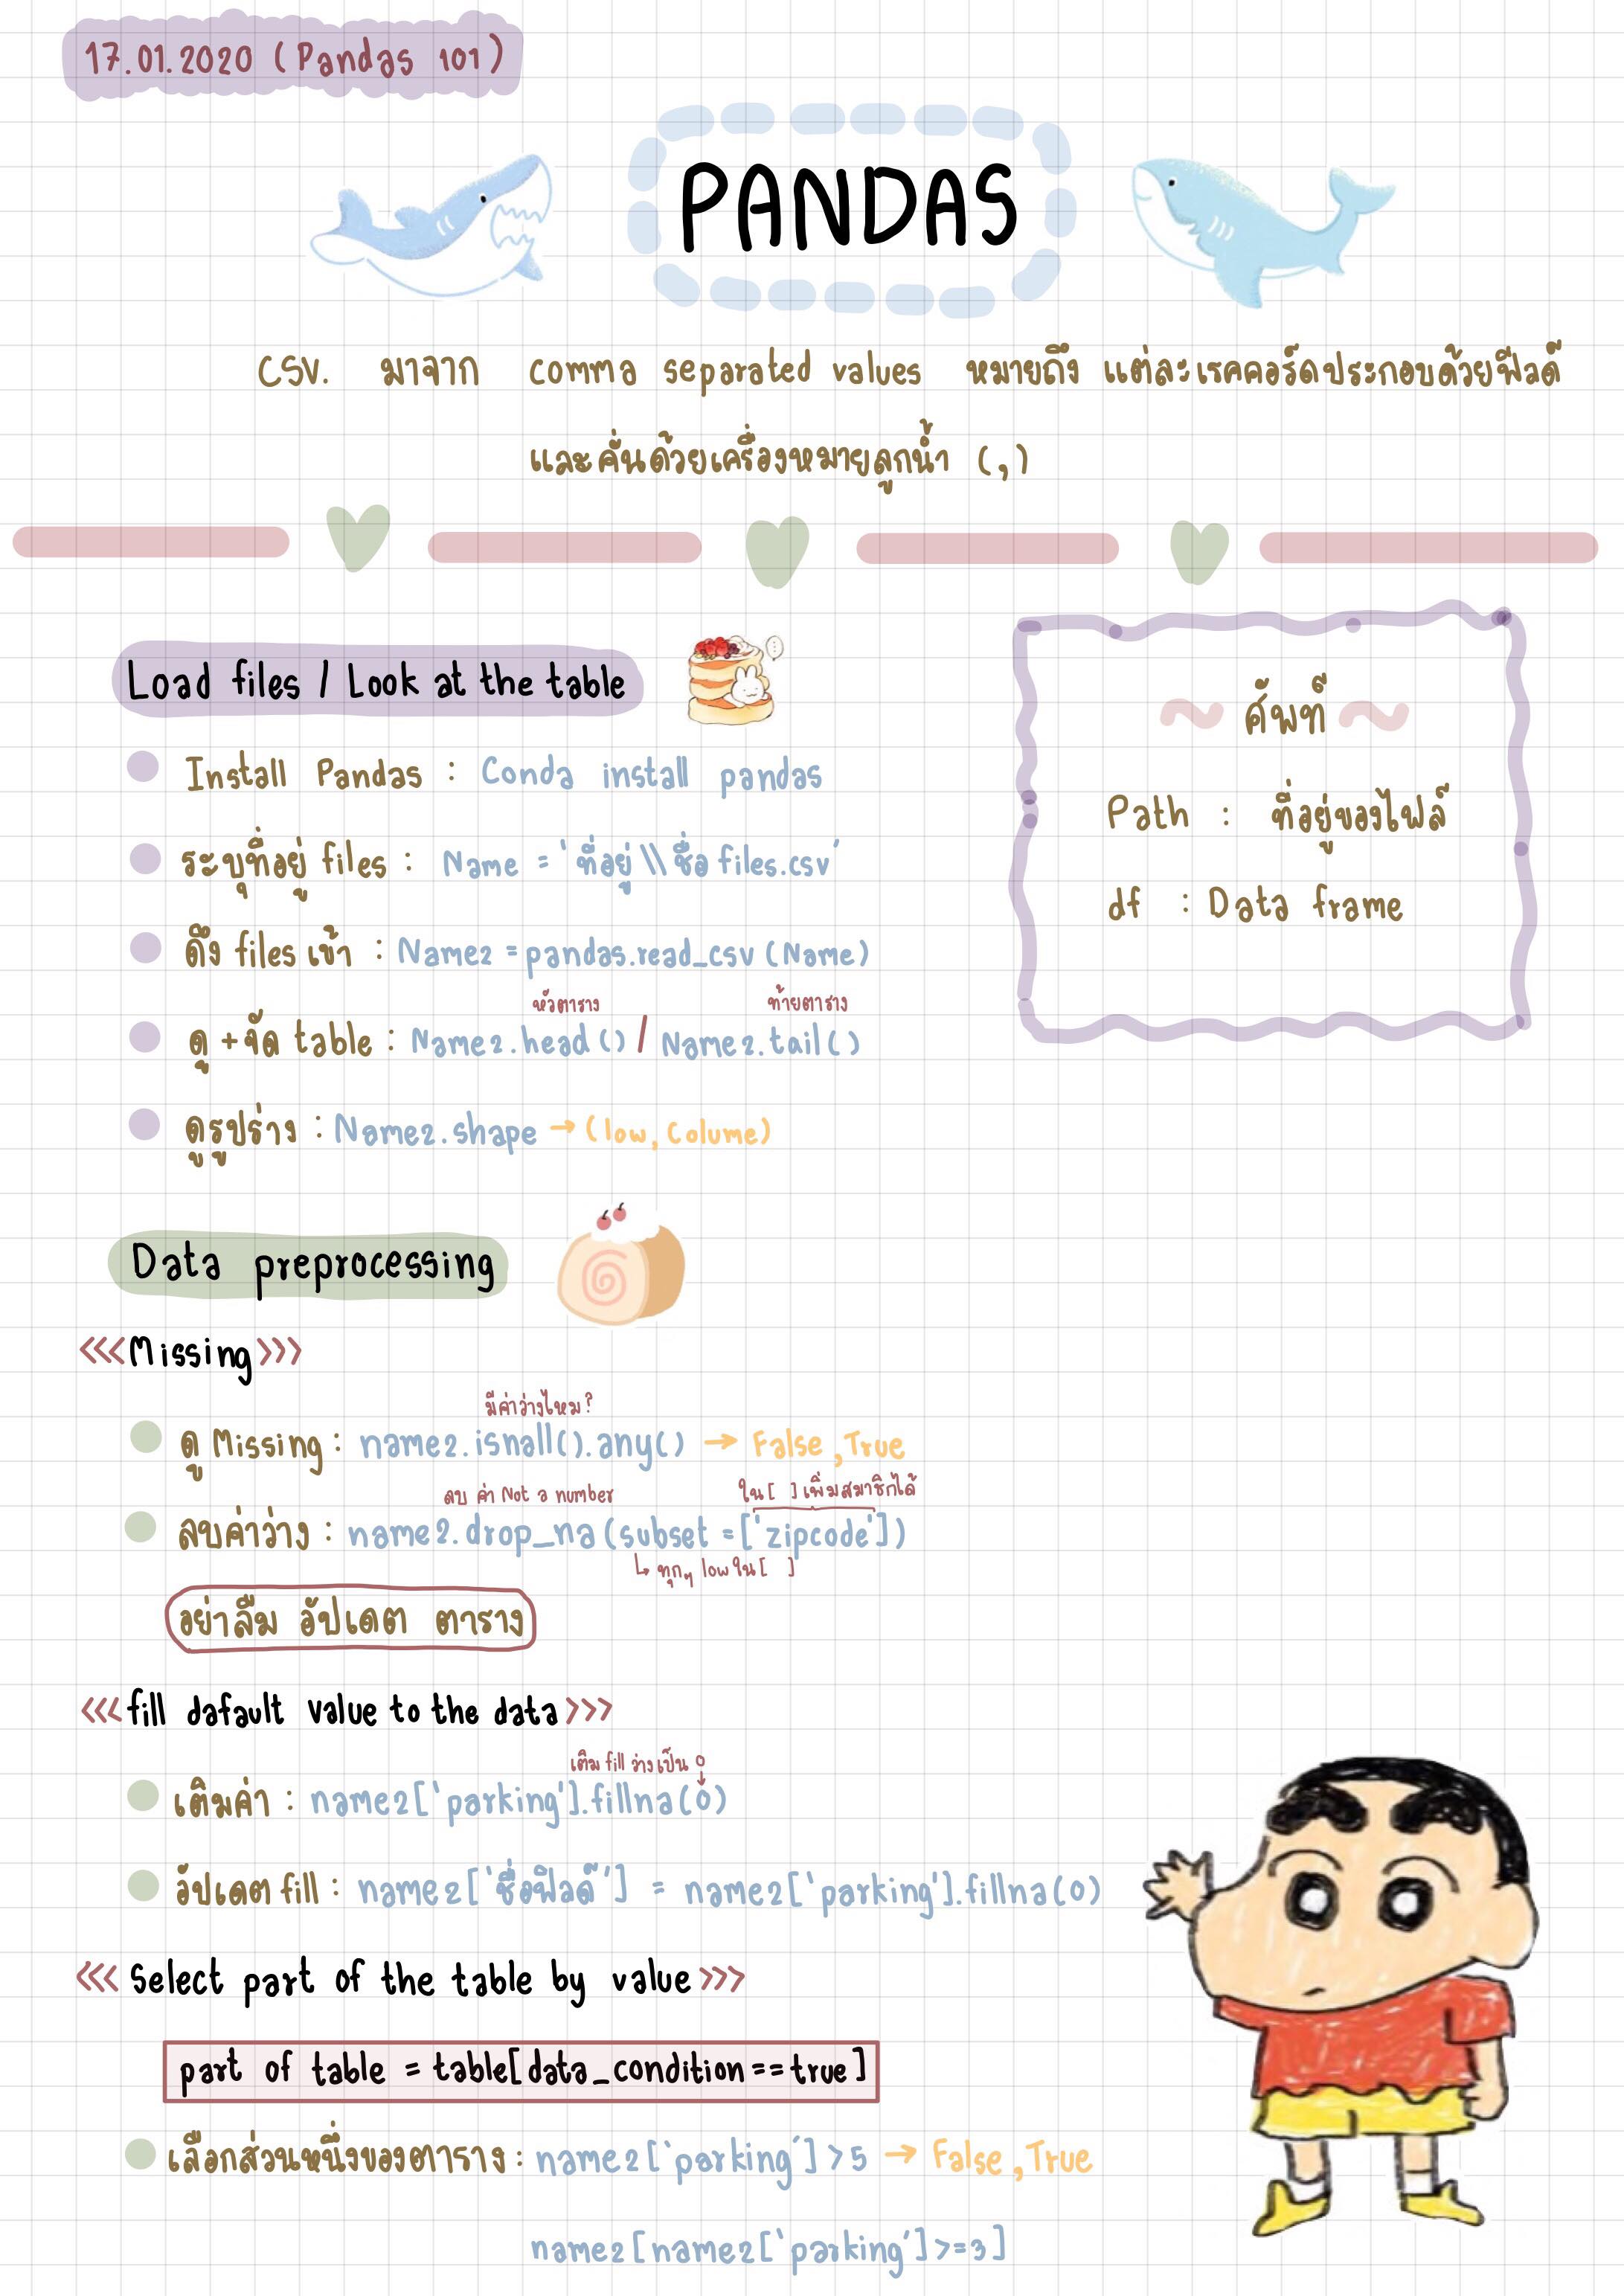 17.01.2020 (Pandas 101)
PANDAS
CSV. มาจาก comma separated values หมายถึง แต่ละเรคคอร์ดประกอบด้วยฟีลด์
และคั่นด้วยเครื่องหมายลูกน้ำ (,)
Load files / Look at the table
Install Pandas : Conda install pandas
ระบุที่อยู่ files : Name = 'ที่อยู่\\ชื่อ files.csv'
ดึง files เข้า : Name2 = pandas.read_csv (Name)
หัวตาราง ท้ายตาราง
ดู + จัด table : Name2.head () / Name2.tail ()
ดูรูปร่าง : Name2.shape → (low, Colume)
~ ศัพท์ ~
Path : ที่อยู่ของไฟล์
df : Data frame
Data preprocessing
<<< Missing >>>
มีค่าว่างไหม?
ดู Missing : name2.isnall().any() → False , True
ลบ ค่า Not a number ใน [ ] เพิ่มสมาชิกได้
ลบค่าว่าง : name2.drop_na (subset = ['zipcode'])
↳ ทุกๆ low ใน [ ]
อย่าลืม อัปเดต ตาราง
<<< fill dafault value to the data >>>
เติม fill ว่างเป็น 0
เติมค่า : name2['parking'].fillna(0)
อัปเดต fill : name2['ชื่อฟิลด์'] = name2['parking'].fillna(0)
<<< Select part of the table by value >>>
part of table = table[data_condition == true]
เลือกส่วนหนึ่งของตาราง : name2['parking'] > 5 → False , True
name2[name2['parking'] >= 3]